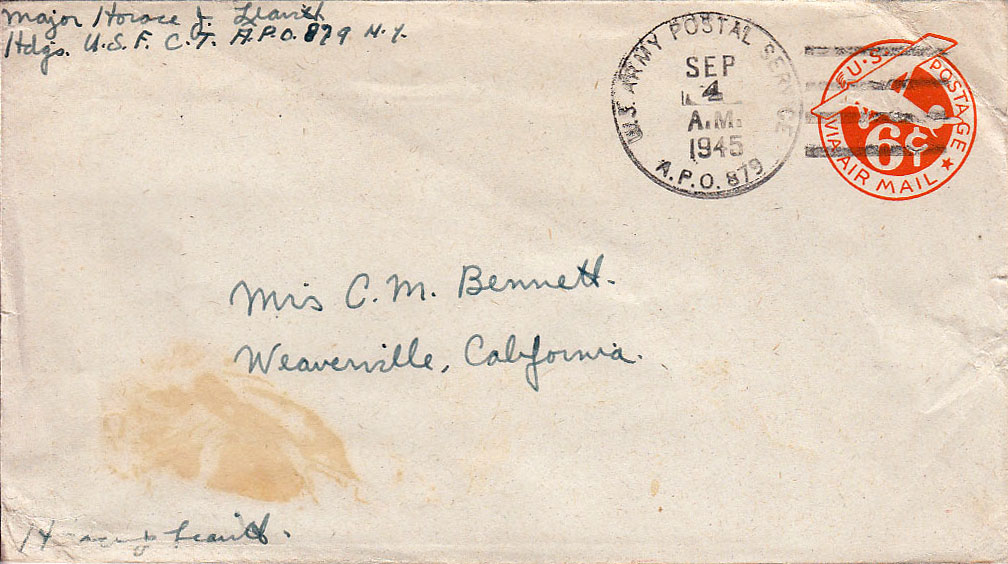 Major Horace J. Leavitt
Hdgs. U.S.F. C.T. A.P.O. 879 N.Y.
U.S. ARMY POSTAL SERVICE
SEP
4
A.M.
1945
A.P.O. 879
U.S. POSTAGE
6¢
VIA AIR MAIL
Mrs C. M. Bennett.
Weaverville, California.
Leavitt.